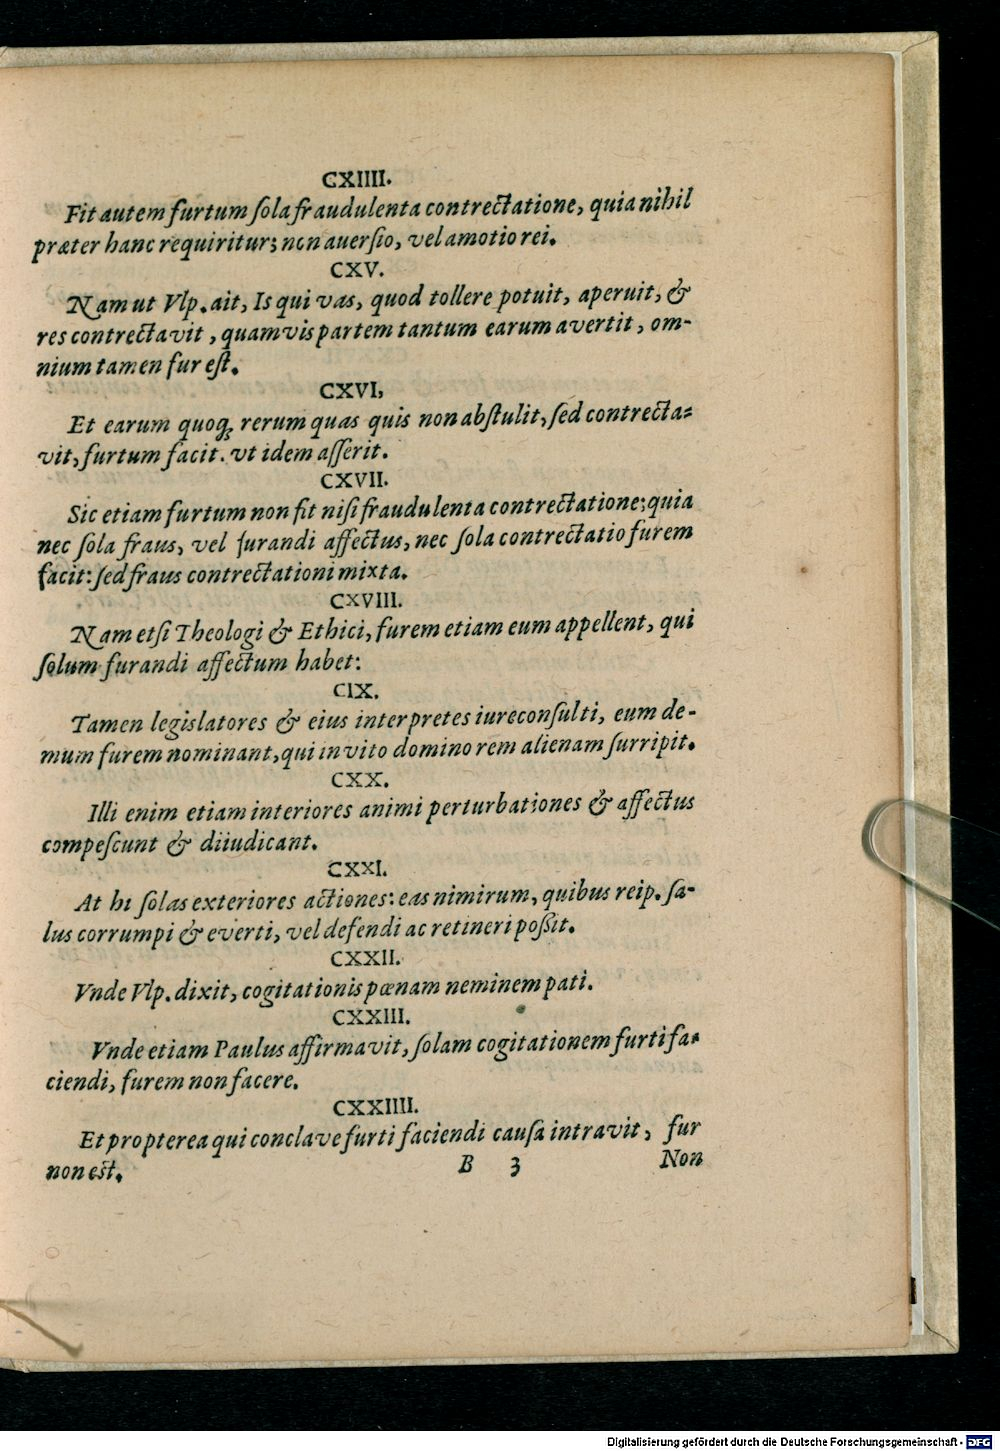 CXIIII.
Fit autem furtum ſola fraudulenta contrectatione, quia nihil
præter hanc requiritur; non auerſio, vel amotio rei.
CXV.
Nam ut Vlp. ait, Is qui vas, quod tollere potuit, aperuit, &
res contrectavit, quamvis partem tantum earum avertit, om-
nium tamen fur eſt.
CXVI,
Et earum quoq; rerum quas quis non abſtulit, ſed contrecta-
vit, furtum facit. vt idem aſſerit.
CXVII.
Sic etiam furtum non fit niſi fraudulenta contrectatione; quia
nec ſola fraus, vel furandi affectus, nec ſola contrectatio furem
facit: ſed fraus contrectationi mixta.
CXVIII.
Nam etſi Theologi & Ethici, furem etiam eum appellent, qui
ſolum furandi affectum habet:
CIX.
Tamen legislatores & eius interpretes iureconſulti, eum de-
mum furem nominant, qui invito domino rem alienam ſurripit.
CXX.
Illi enim etiam interiores animi perturbationes & affectus
compeſcunt & diiudicant.
CXXI.
At hi ſolas exteriores actiones: eas nimirum, quibus reip. ſa-
lus corrumpi & everti, vel defendi ac retineri poſsit.
CXXII.
Vnde Vlp. dixit, cogitationis pœnam neminem pati.
CXXIII.
Vnde etiam Paulus affirmavit, ſolam cogitationem furti fa-
ciendi, furem non facere.
CXXIIII.
Et propterea qui conclave furti faciendi cauſa intravit, fur
non eſt.
B 3
Non
Digitalisierung gefördert durch die Deutsche Forschungsgemeinschaft - DFG